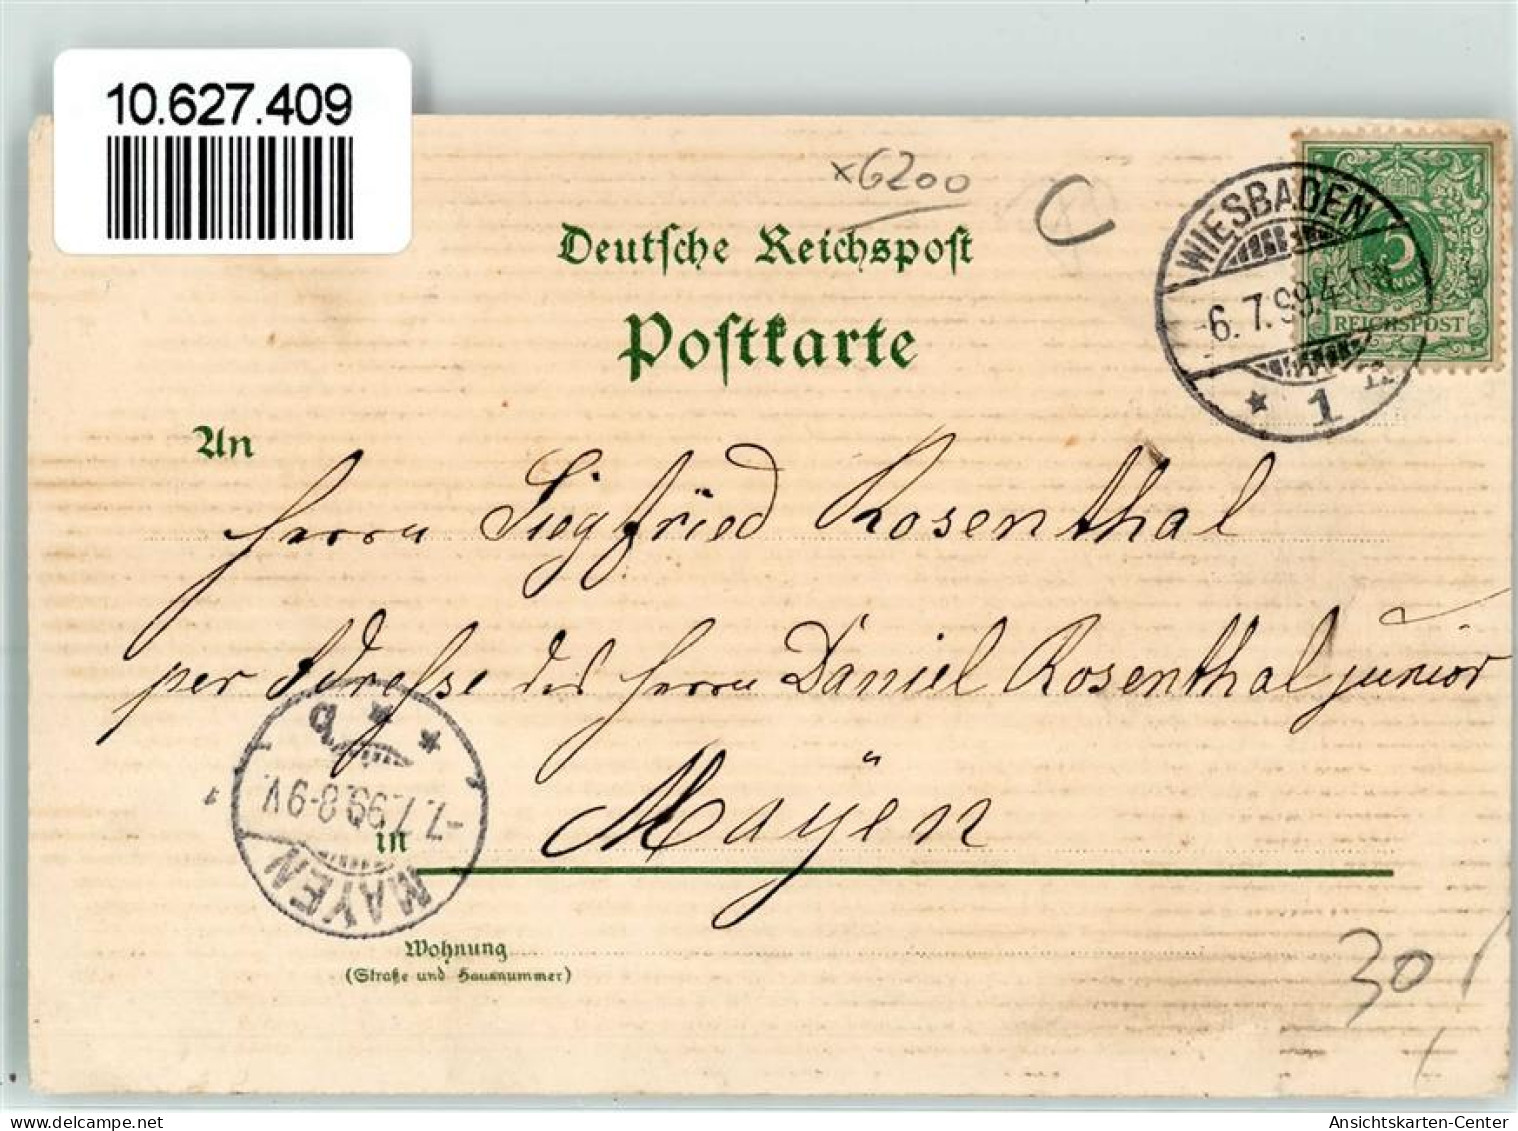 10.627.409
x6200
Deutsche Reichspost
Postkarte
WIESBADEN
6.7.99.4-5N.
1
5
REICHSPOST
An
Herrn Siegfried Rosenthal
per Adresse des Herrn Daniel Rosenthal junior
in Mayen
MAYEN
-7.7.99.8-9V.
b
Wohnung
(Straße und Hausnummer)
30
10627409
Ansichtskarten-Center